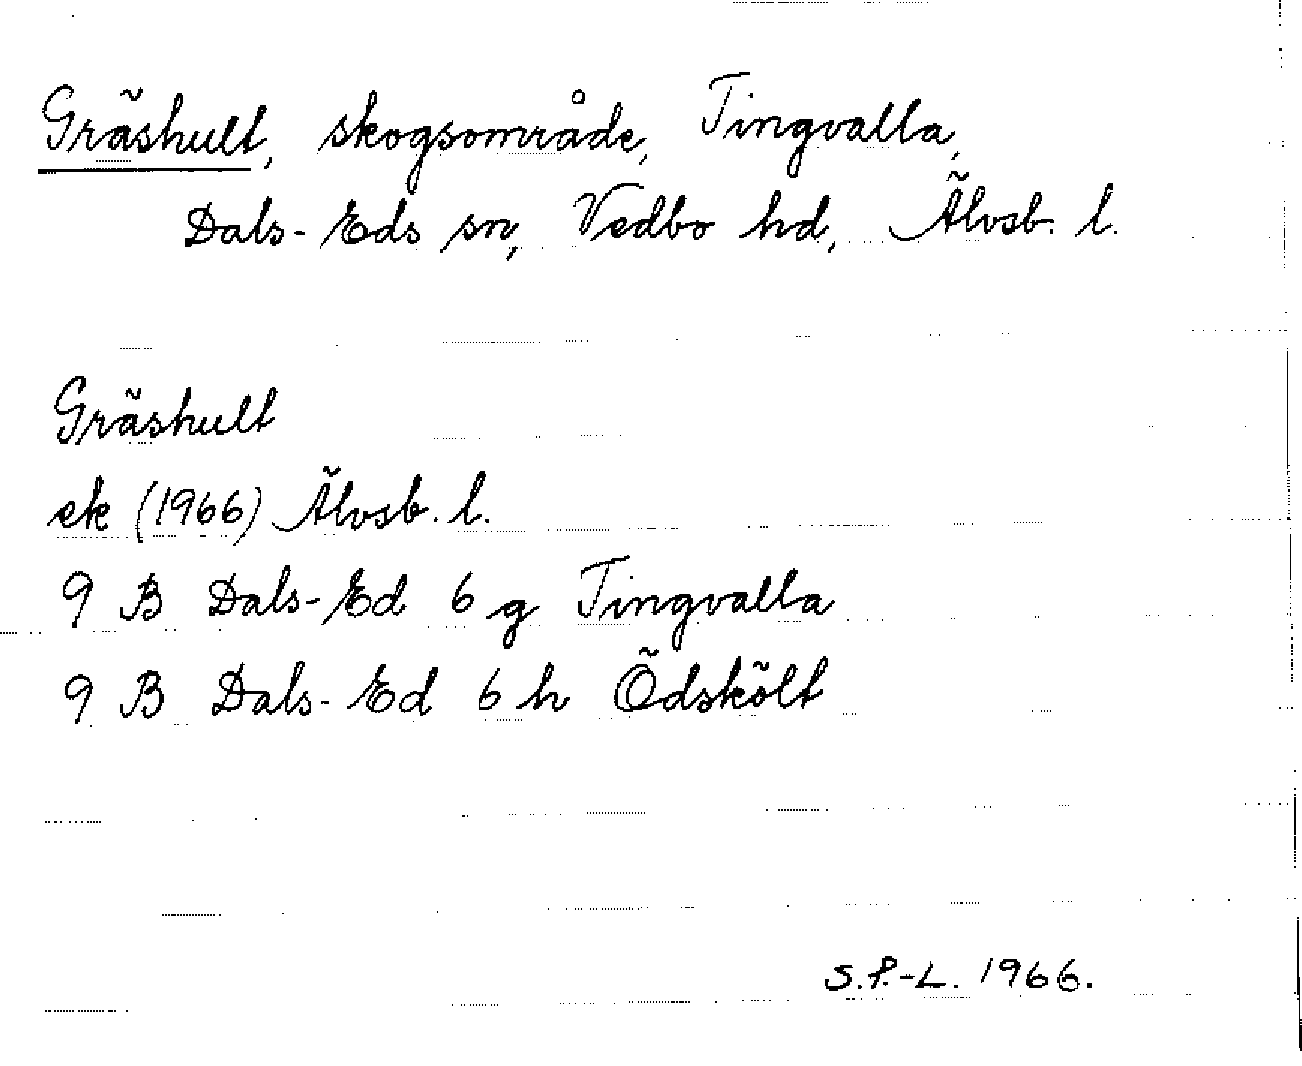 Gräshult, skogsområde, Tingvalla,
Dals-Eds sn, Vedbo hd, Älvsb. l.
Gräshult
ek (1966) Älvsb. l.
9 B Dals-Ed 6 g Tingvalla
9 B Dals-Ed 6 h Ödskölt
S.P.-L. 1966.